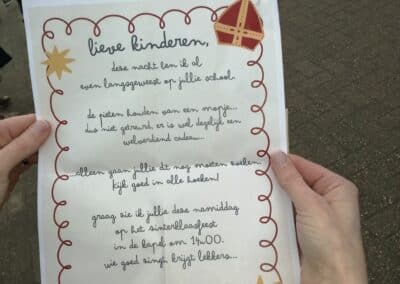 lieve kinderen,
deze nacht ben ik al
even langsgeweest op jullie school.
de pieten houden van een mopje...
dus niet getreurd, er is wel degelijk een
welverdiend cadeau...
alleen gaan jullie dit nog moeten zoeken.
kijk goed in alle hoeken!
graag zie ik jullie deze namiddag
op het sinterklaasfeest
in de kapel om 14u00.
wie goed zingt krijgt lekkers...